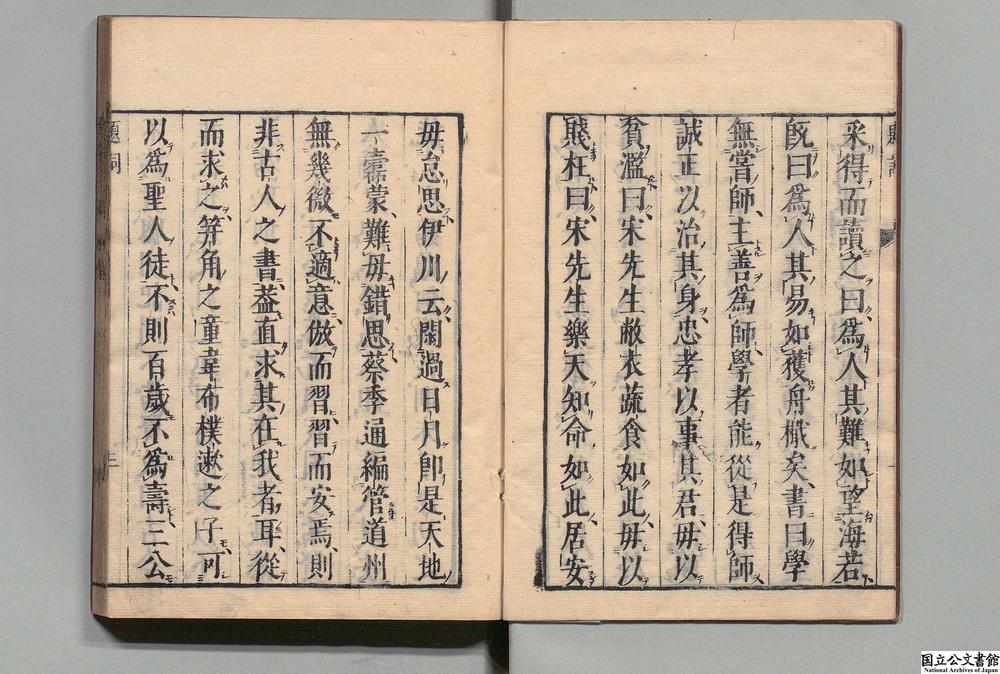 釆得而讀之曰爲人其難如望海若
旣曰爲人其易如獲舟檝矣書曰學
無嘗師主善爲師學者能從是得師
誠正以治其身忠孝以事其君毋以
貧濫曰宋先生敝衣蔬食如此毋以
賤枉曰宋先生樂天知命如此居安
毋怠思伊川云閑過日月卽是天地
一蠹蒙難毋錯思蔡季通編管道州
無幾微不適意倣而習習而安焉則
非古人之書葢直求其在我者耳從
而求之笄角之童韋布樸遬之子可
以爲聖人徒不則百歲不爲壽三公
題詞
三
国立公文書館
National Archives of Japan